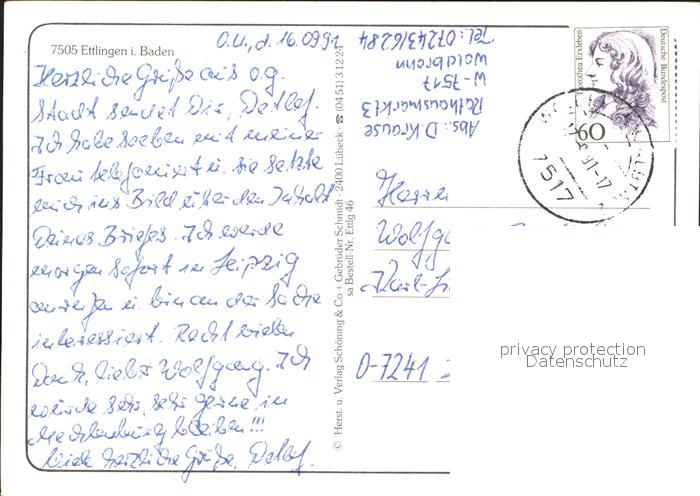 7505 Ettlingen i. Baden
O.U., d. 16.09.91
Herzliche Grüße aus o.g.
Stadt sendet Dir, Detlef.
Ich habe soeben mit meiner
Frau telefoniert u. sie setzte
mich ins Bild über den Inhalt
Deines Briefes. Ich werde
morgen sofort in Leipzig
anrufen u. bin an der Sache
interessiert. Recht vielen
Dank, lieber Wolfgang. Ich
würde sehr, sehr gerne in
Mecklenburg bleiben!!!
Viele herzliche Grüße, Detlef.
© Herst. u. Verlag Schöning & Co + Gebrüder Schmidt · 2400 Lübeck · ☎ (04 51) 3 12 24
sa Bestell-Nr. Ettlg 46
Abs.: D. Krause
Rathausmarkt 3
W-7517
Waldbronn
Tel.: 07243/6284
Dorothea Erxleben
Deutsche Bundespost
60
7517
Herrn
Wolfg
O-7241
privacy protection
Datenschutz